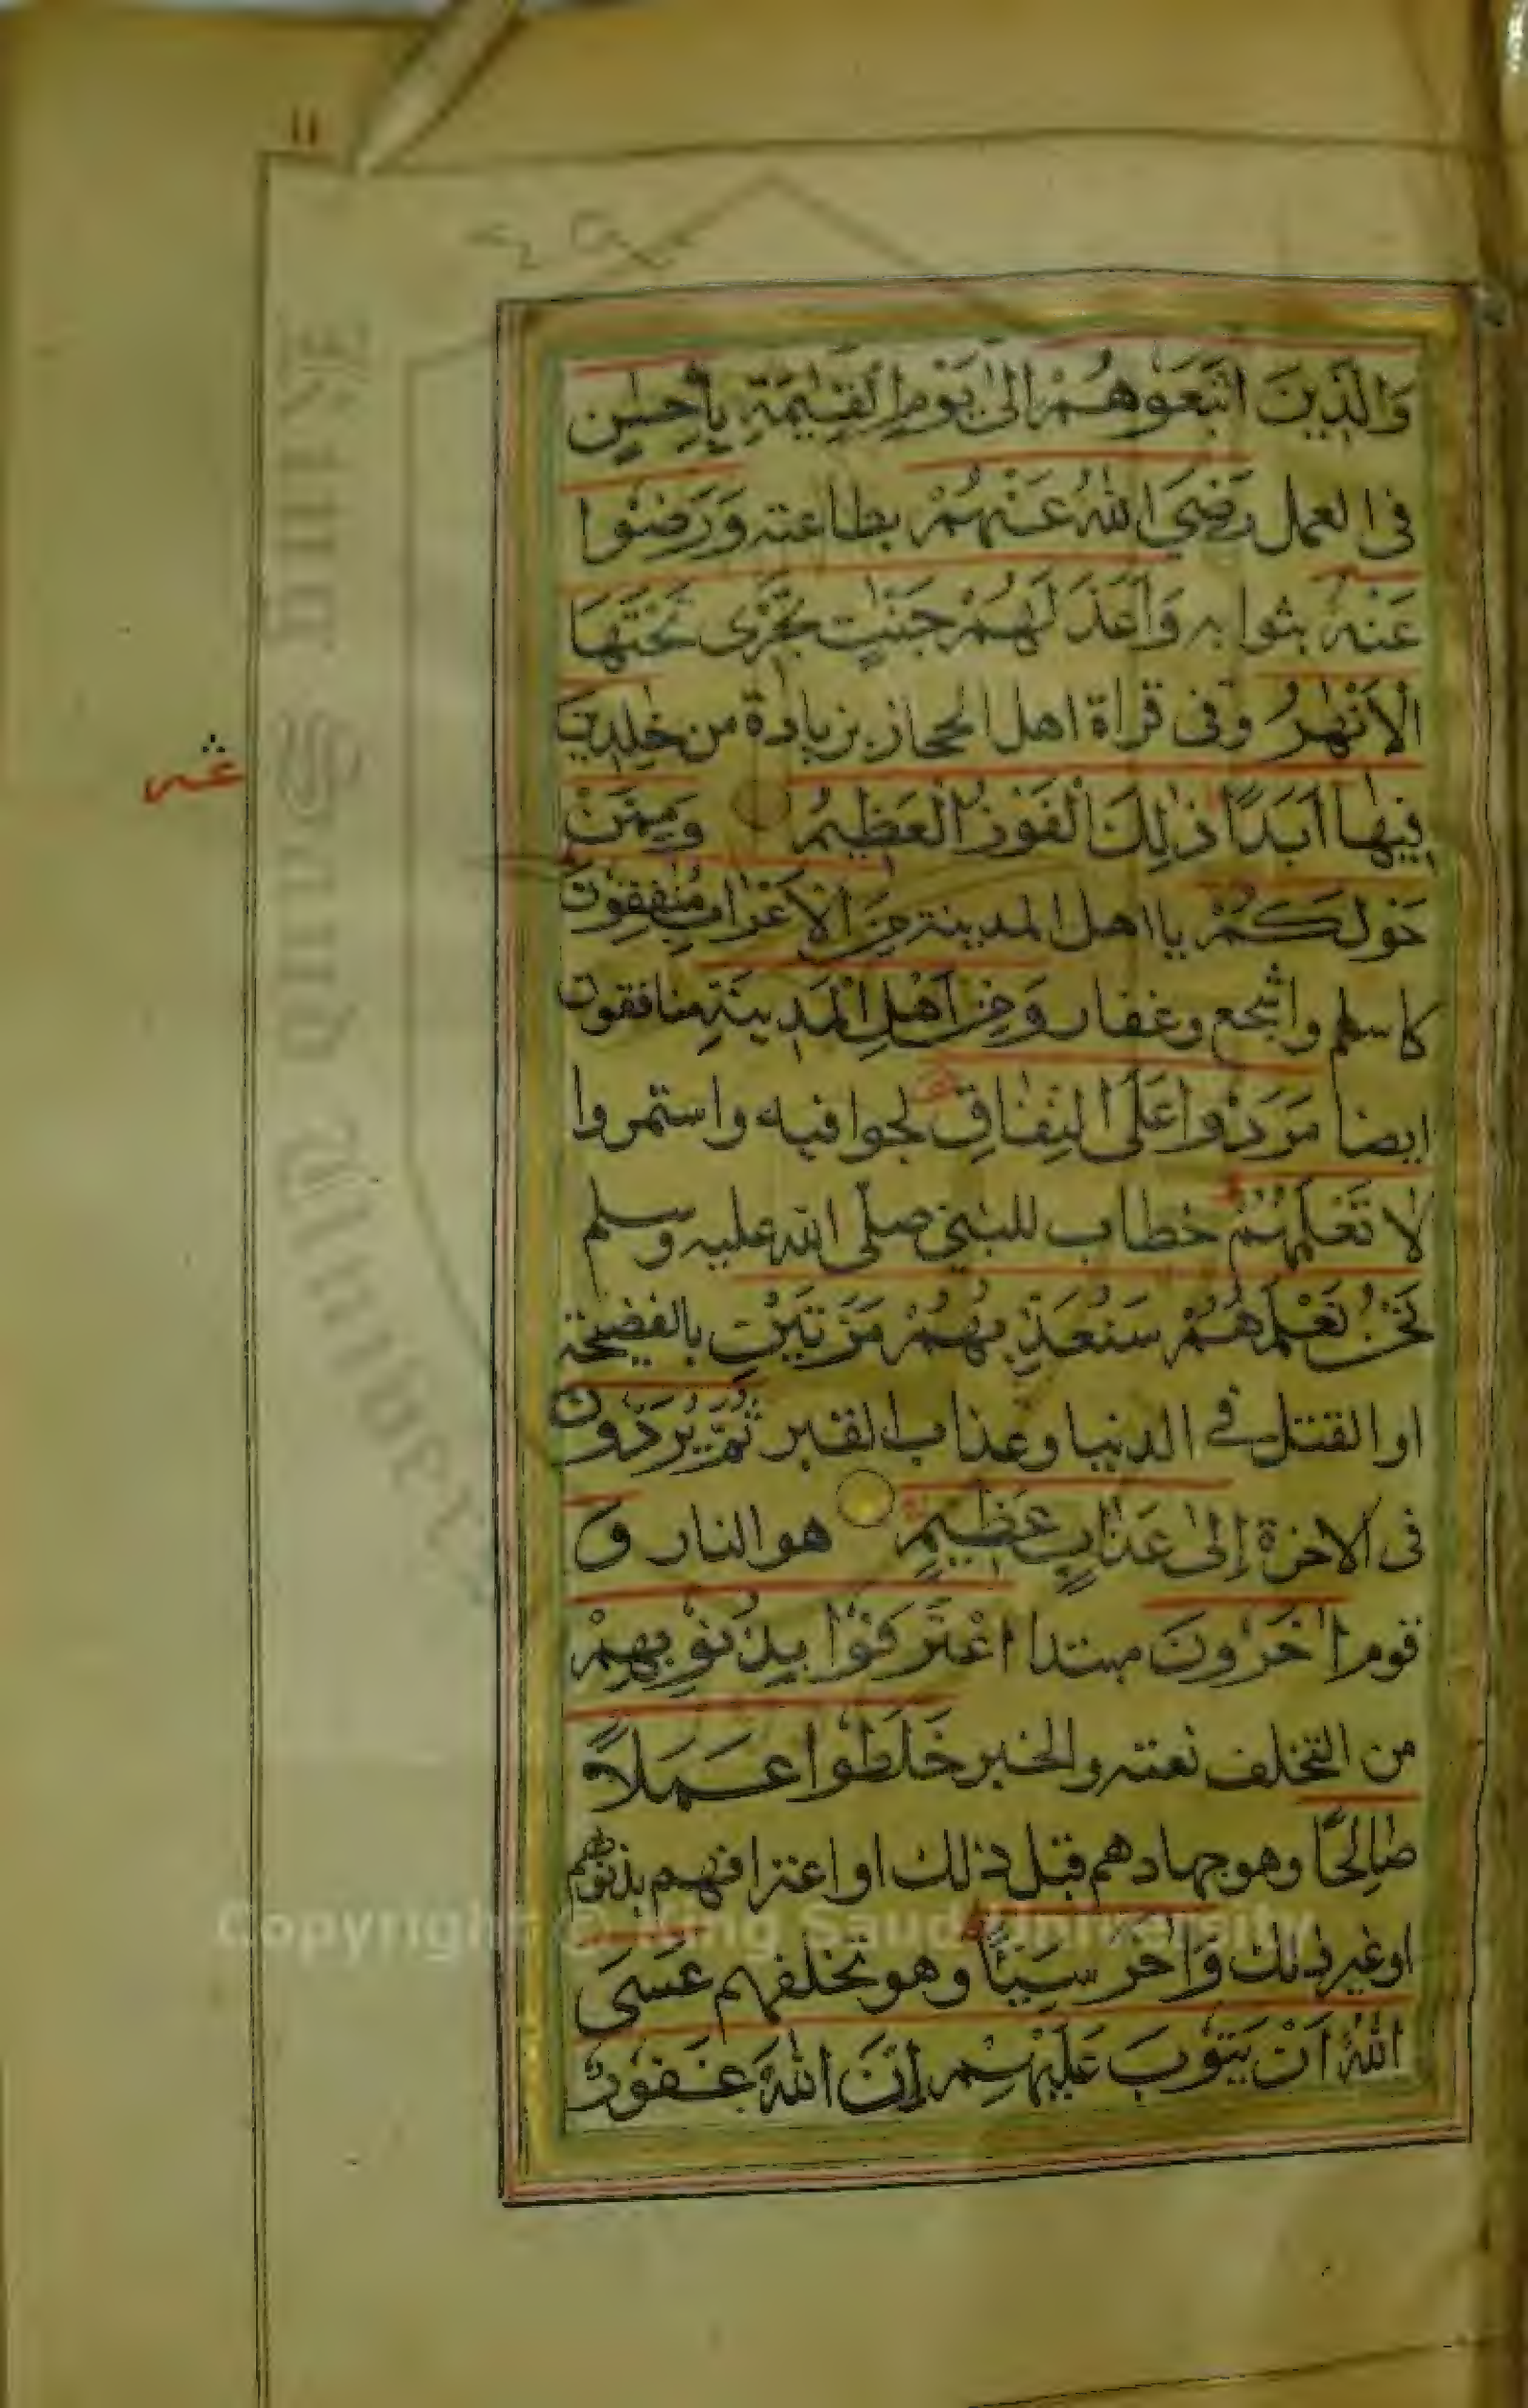 ١١
وَالَّذِينَ اتَّبَعُوهُمْ الىٰ يَوْمِ الْقِيٰمَةِ بِاِحْسٰنٍ
فى العمل رَضِىَ اللهُ عَنْهُمْ بطاعته وَرَضُوا
عَنْهُ بثوابه وَاَعَدَّ لَهُمْ جَنّٰتٍ تَجْرِى تَحْتَهَا
الْاَنْهٰرُ وفى قراة اهل الحجاز بزيادة من خٰلِدِينَ
فِيهَا اَبَدًا ذٰلِكَ الْفَوْزُ الْعَظِيمُ وَمِمَّنْ
حَوْلَكُمْ يا اهل المدينة مِنَ الْاَعْرَابِ مُنٰفِقُونَ
كاسلم واشجع وغفار وَمِنْ اَهْلِ الْمَدِينَةِ منافقون
ايضا مَرَدُوا عَلَى النِّفَاقِ لجوا فيه واستمروا
لَا تَعْلَمُهُمْ خطاب للنبى صلى الله عليه وسلم
نَحْنُ نَعْلَمُهُمْ سَنُعَذِّبُهُمْ مَرَّتَيْنِ بالفضيحة
او القتل فى الدنيا وعذاب القبر ثُمَّ يُرَدُّونَ
فى الاخرة اِلىٰ عَذَابٍ عَظِيمٍ هو النار وَ
قوم اٰخَرُونَ مبتدا اعْتَرَفُوا بِذُنُوبِهِمْ
من التخلف نعته والخبر خَلَطُوا عَمَلًا
صَالِحًا وهو جهادهم قبل ذلك او اعترافهم بذنوبهم
او غير ذلك وَاٰخَرَ سَيِّئًا وهو تخلفهم عَسَى
اللهُ اَنْ يَتُوبَ عَلَيْهِمْ اِنَّ اللهَ غَفُورٌ
Copyright © King Saud University